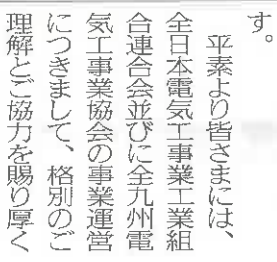 す。
　平素より皆さまには、
全日本電気工事業工業組
合連合会並びに全九州電
気工事業協会の事業運営
につきまして、格別のご
理解とご協力を賜り厚く